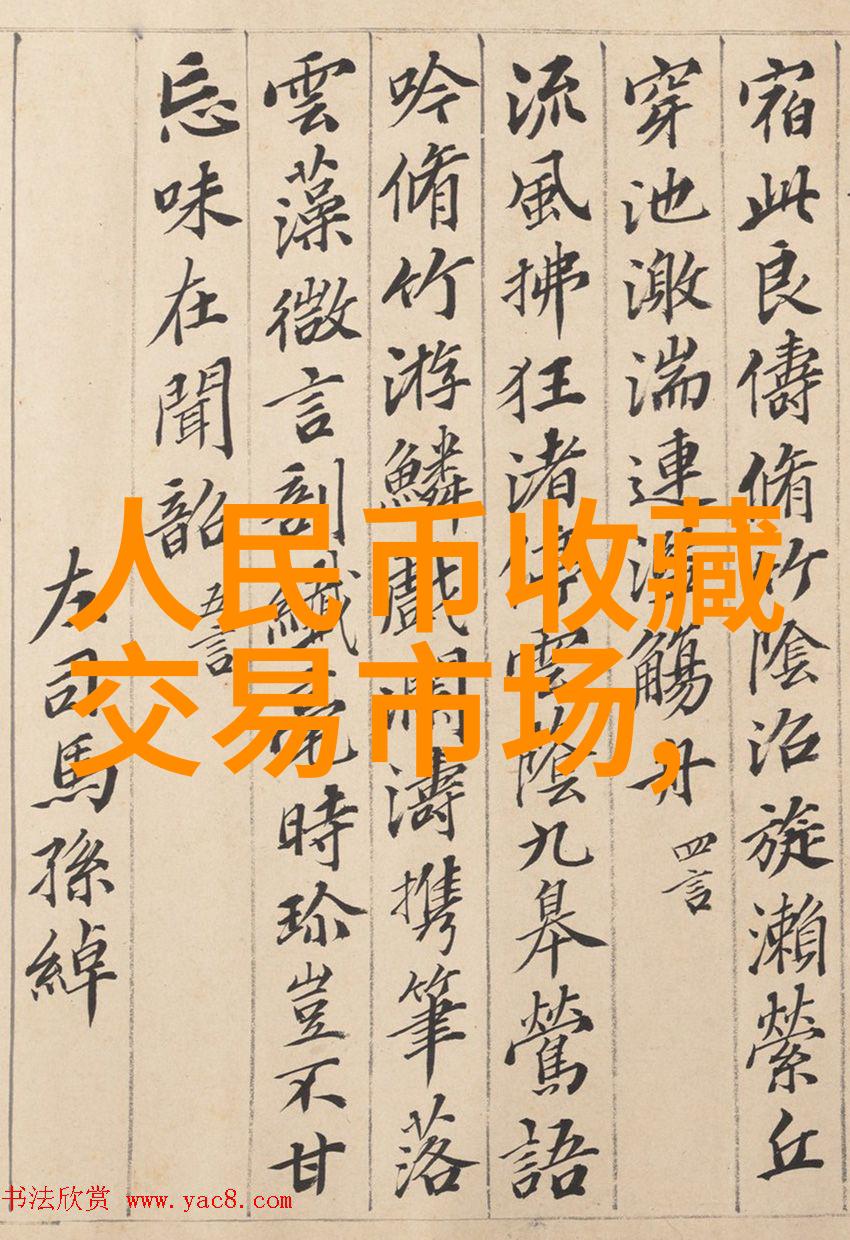 宿此良儔脩竹陰沼旋瀨縈丘
穿池激湍連濫觴舟 四言
流風拂狂渚停雲蔭九皋鶯語
吟脩竹游鱗戲瀾濤携筆落
雲藻微言剖纖毫時珎豈不甘
忘味在聞韶 五言
左司馬孫綽
人民币收藏
交易市场,
书法欣赏 www.yac8.com